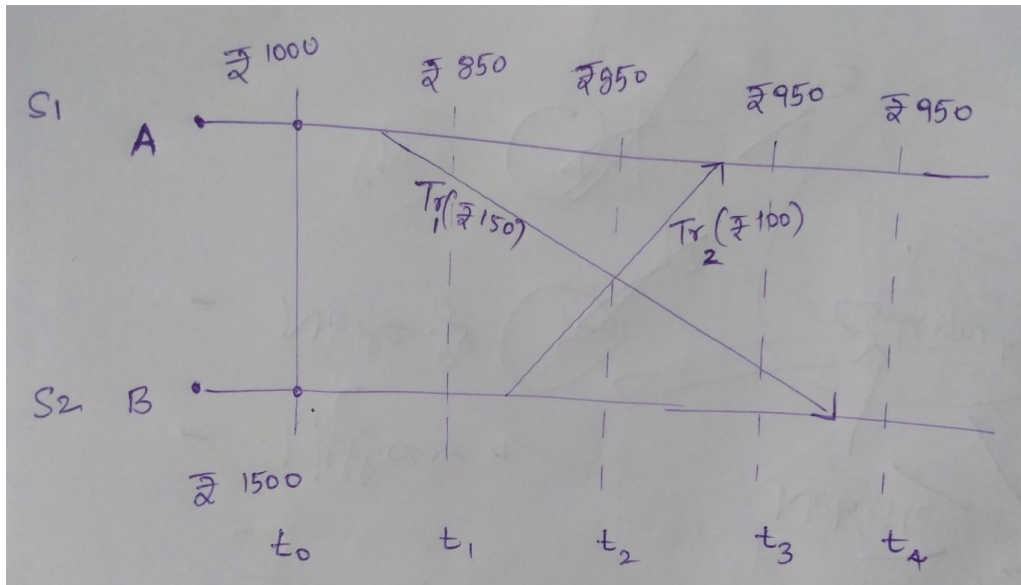 ₹ 1000 ₹ 850 ₹ 850 ₹ 950 ₹ 950
S1 A
Tr1(₹150) Tr2(₹100)
S2 B
₹ 1500
t0 t1 t2 t3 t4